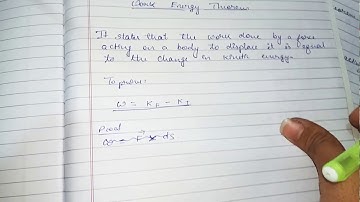 Work Energy Theorem
It states that the work done by a force
acting on a body to displace it is equal
to the change in kinetic energy.
To prove:
W = K_F - K_I
Proof